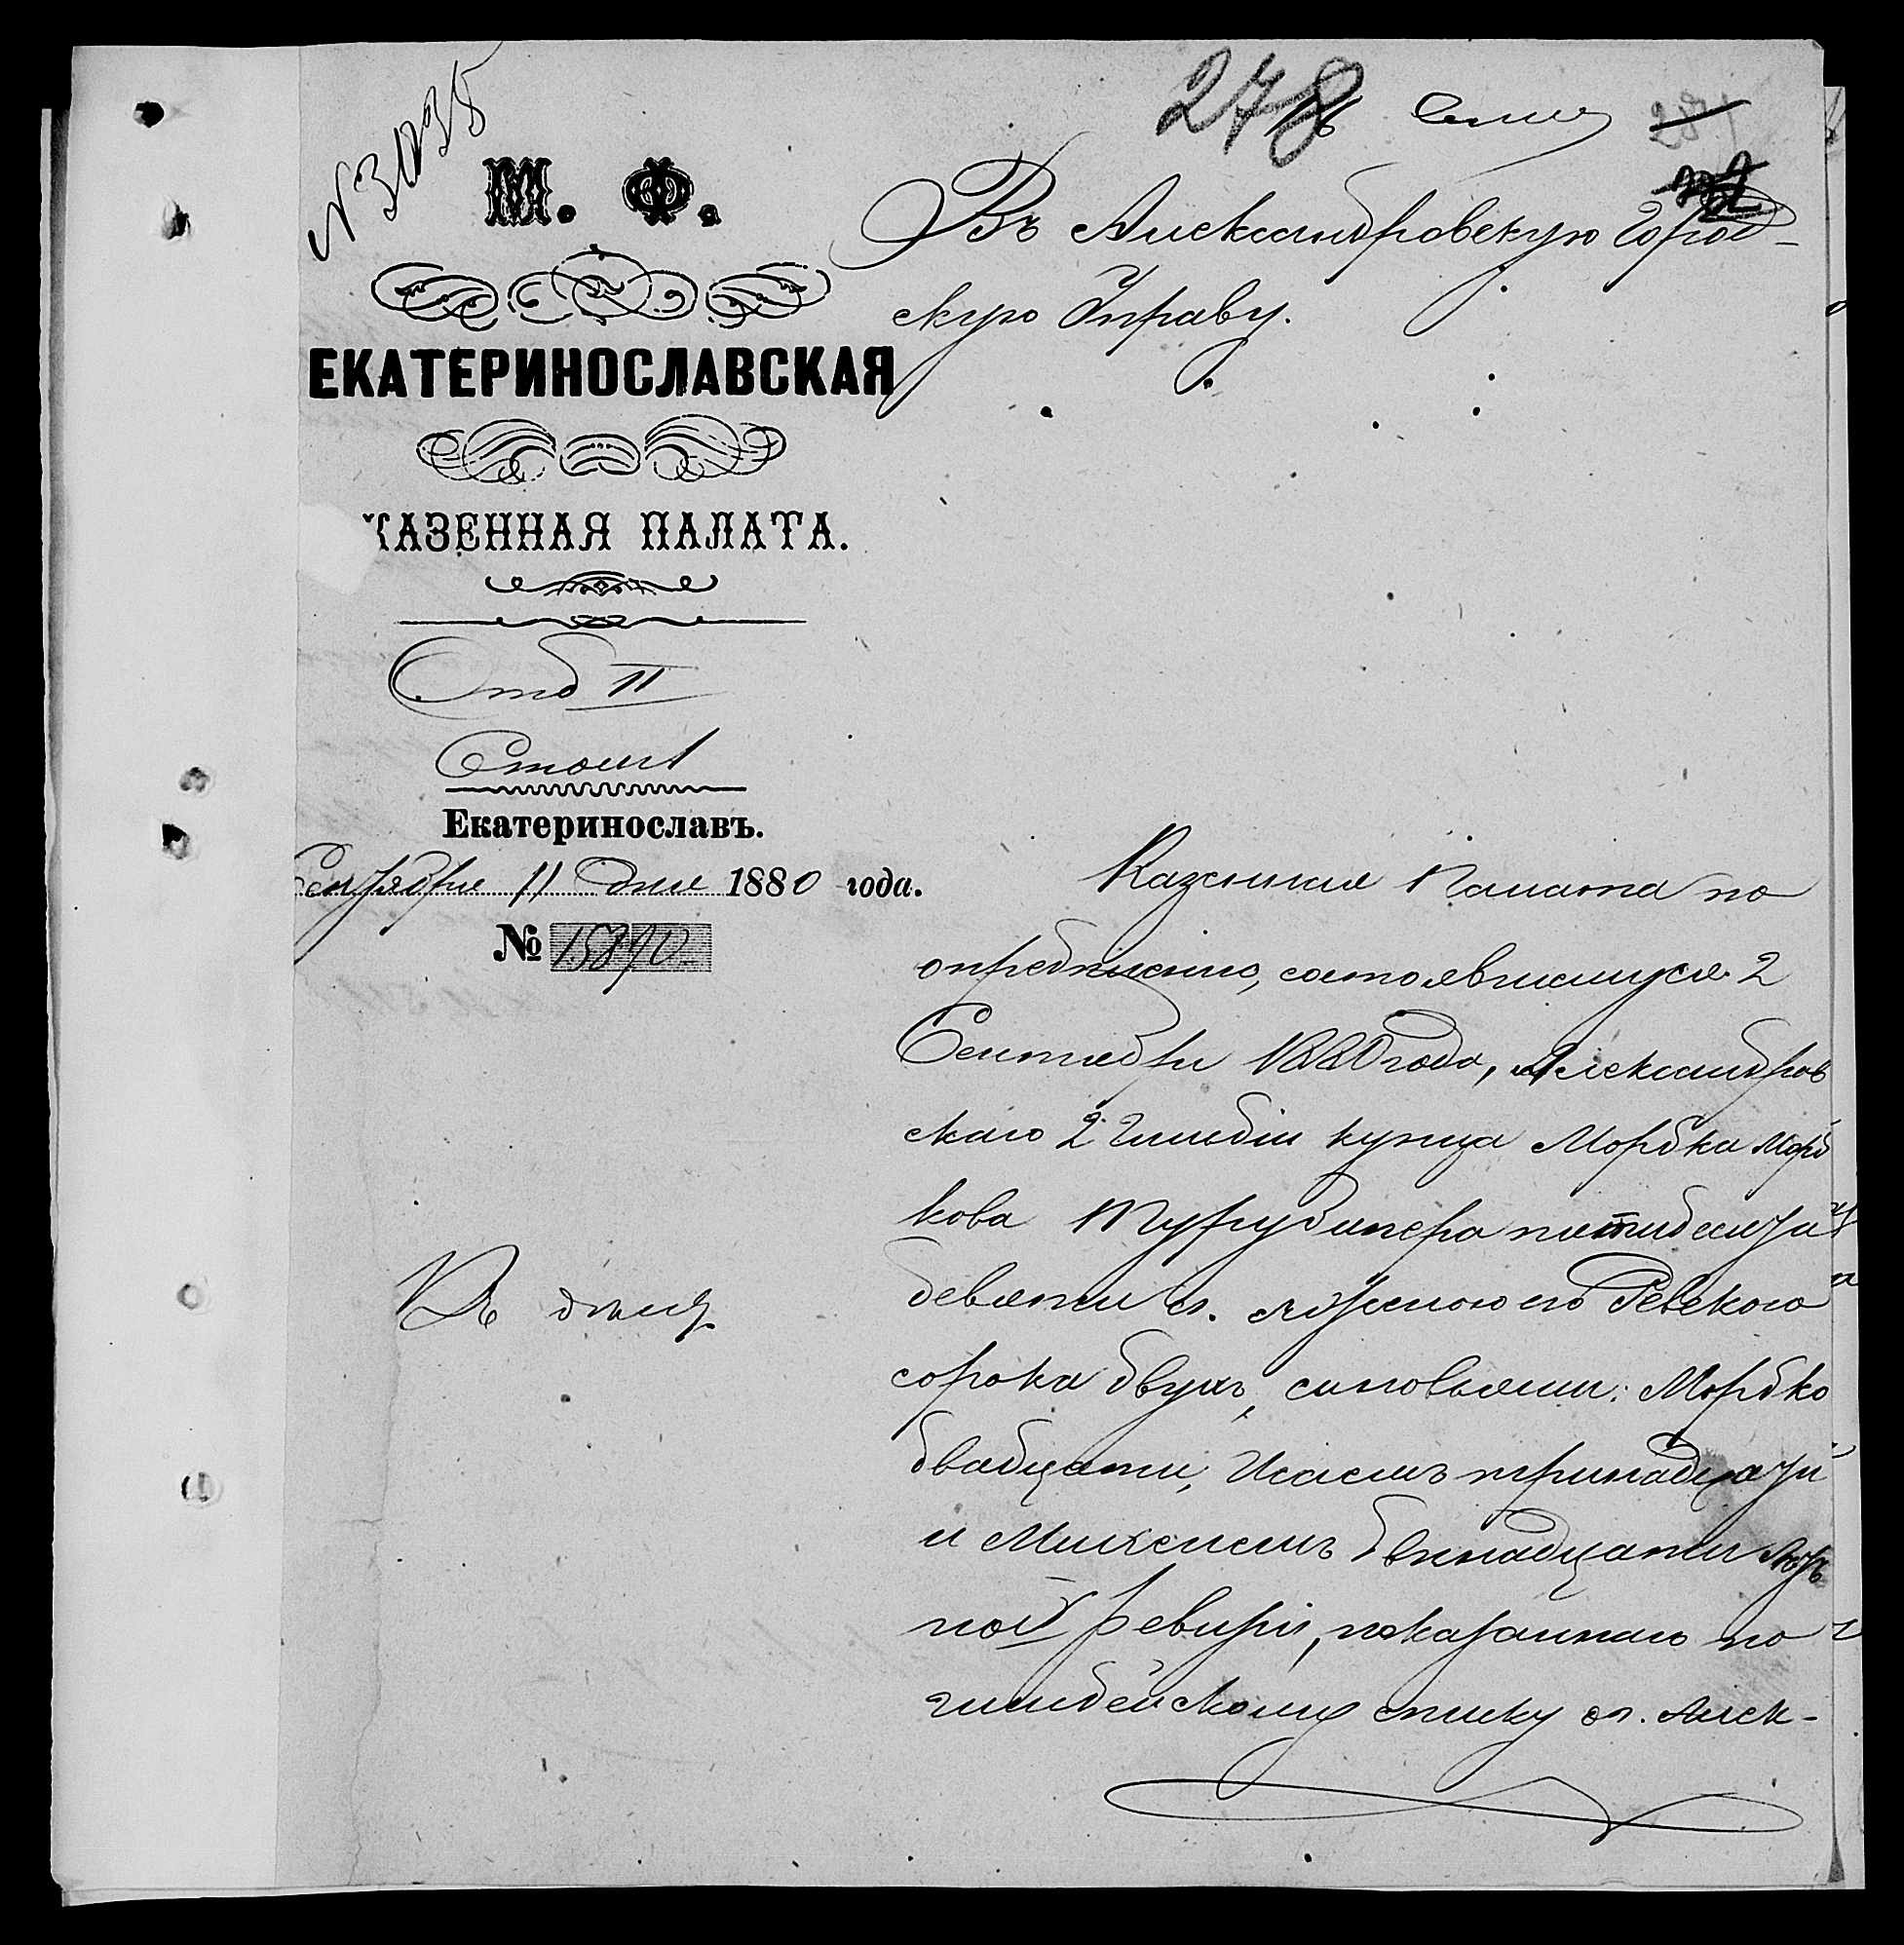 № 3035
278
16 Сент
М. Ф.
ЕКАТЕРИНОСЛАВСКАЯ
КАЗЕННАЯ ПАЛАТА.
Отд II
Столъ 1
Екатеринославъ.
Сентября 11 дня 1880 года.
№ 15890
Къ дѣлу
Въ Александровскую Город-
скую Управу.
Казенная Палата по
опредѣленію, состоявшемуся 2
Сентября 1880 года, Александров
скаго 2 гильдіи купца Мордка Морд
кова Тугендгера пятидесяти
девяти л. съ женою его Ревекою
сорока двухъ, сыновьями: Мордко
двадцати, Исаемъ тринадцати
и Михелемъ двѣнадцати лѣтъ
по X ревизіи, показаннаго по
гильдейскому списку г. Алек-